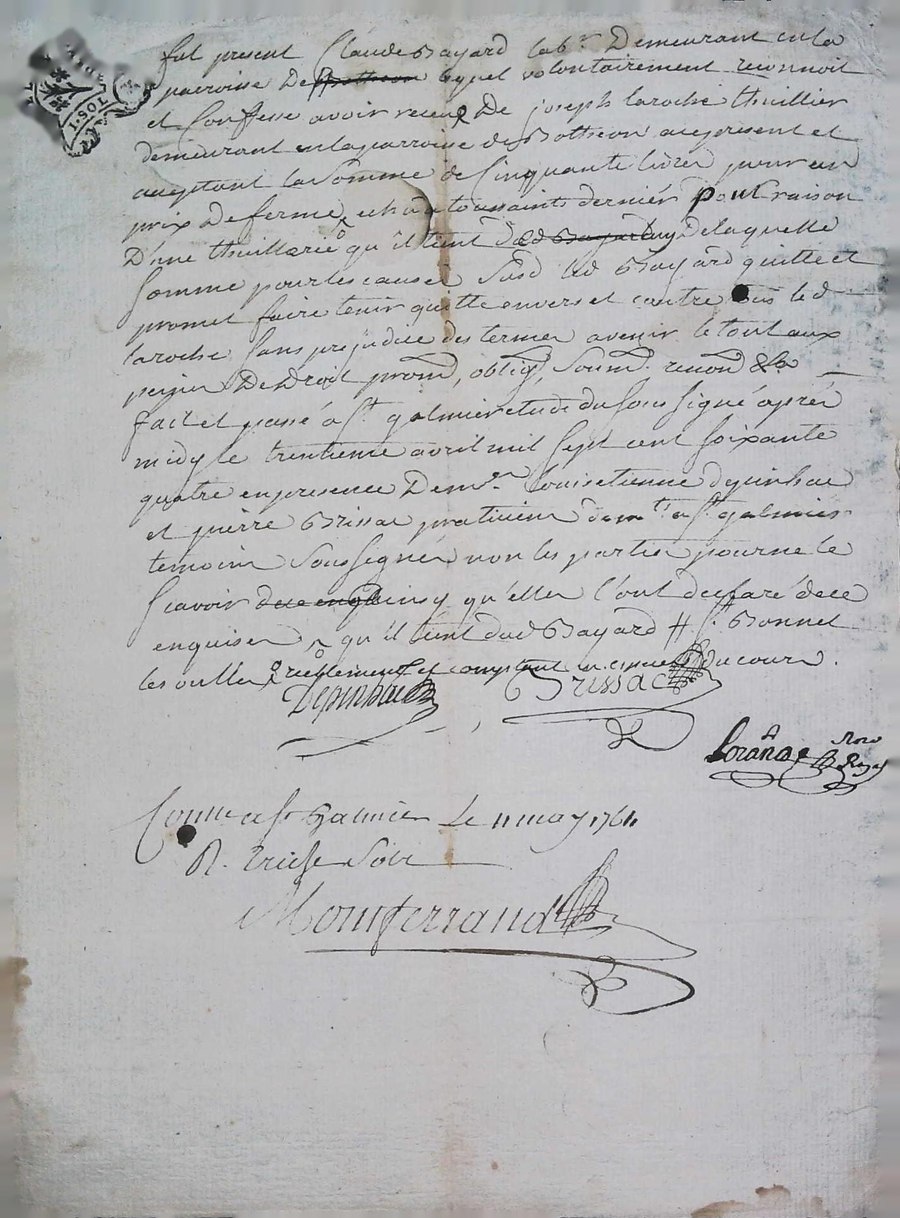 1·SOL
fut present Claude Bayard labr Demeurant en la
parroisse De Botheon lequel volontairement reconnoit
et Confesse avoir receu De joseph laroche thuillier
demeurant en la parroisse de Botheon acepresent et
aceptant la Somme de Cinquante livres pour un
prix De ferme echu a toussaints dernier pour raison
D'une thuillarie qu'il tient dud Bayard Delaquelle
Somme pour les causes Susd led Bayard quitte et
promet faire tenir quitte envers et contre tous led
laroche Sans prejudice des termes avenir le tout aux
peines De Droit promd, obligd, Soumd, renond &a
fait et passé a St galmier etude du Sous Signé aprés
midy le trentieme avril mil Sept cent Soixante
quatre en presence De mr Louis etienne depinhac
et pierre Brissac praticiens demt a St galmier
temoins Soussignés non les parties pour ne le
Scavoir ainsy qu'elles l'ont declaré de ce
enquises qu'il tient dud Bayard # St Bonnet
les oulles reellement et comptant en especes du cours.
Depinhac Brissac
Lorange Nore Royal
Conlle a St Galmier Le 11 may 1764
R. treise Sols
Montferrand